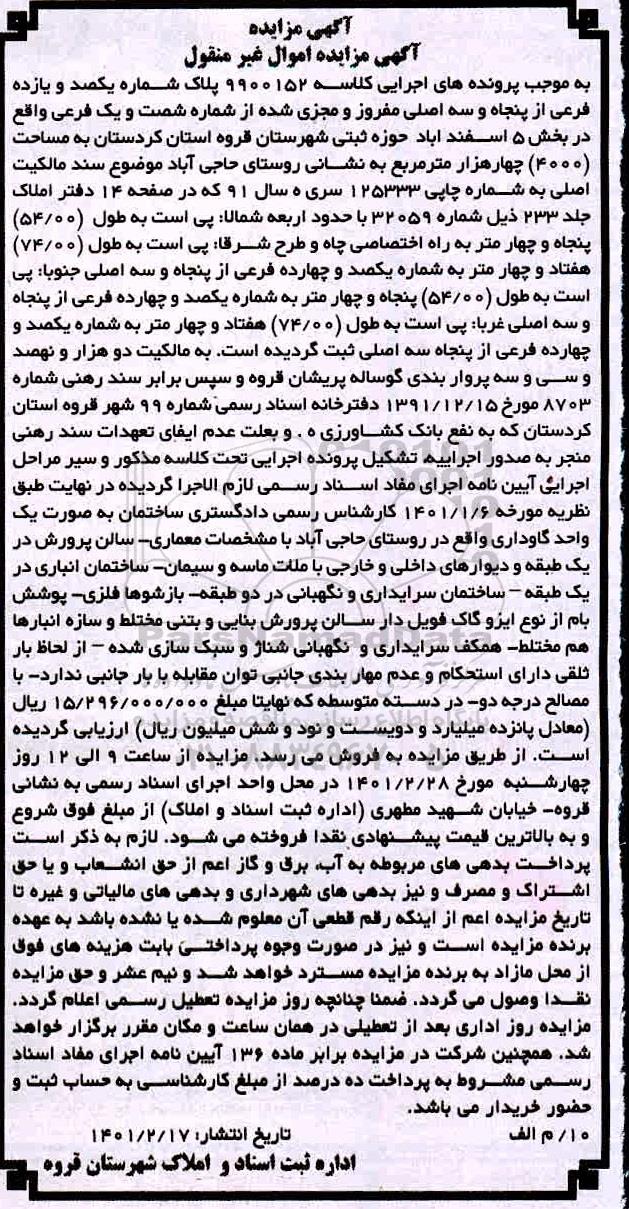 آگهی مزایده
آگهی مزایده اموال غیر منقول
به موجب پرونده های اجرایی کلاسه ۹۹۰۰۱۵۲ پلاک شماره یکصد و یازده
فرعی از پنجاه و سه اصلی مفروز و مجزی شده از شماره شصت و یک فرعی واقع
در بخش ۵ اسفند اباد حوزه ثبتی شهرستان قروه استان کردستان به مساحت
(۴۰۰۰) چهارهزار مترمربع به نشانی روستای حاجی آباد موضوع سند مالکیت
اصلی به شماره چاپی ۱۲۵۳۳۳ سری ه سال ۹۱ که در صفحه ۱۴ دفتر املاک
جلد ۲۳۳ ذیل شماره ۳۲۰۵۹ با حدود اربعه شمالا: پی است به طول (۵۴/۰۰)
پنجاه و چهار متر به راه اختصاصی چاه و طرح شرقا: پی است به طول (۷۴/۰۰)
هفتاد و چهار متر به شماره یکصد و چهارده فرعی از پنجاه و سه اصلی جنوبا: پی
است به طول (۵۴/۰۰) پنجاه و چهار متر به شماره یکصد و چهارده فرعی از پنجاه
و سه اصلی غربا: پی است به طول (۷۴/۰۰) هفتاد و چهار متر به شماره یکصد و
چهارده فرعی از پنجاه سه اصلی ثبت گردیده است. به مالکیت دو هزار و نهصد
و سی و سه پروار بندی گوساله پریشان قروه و سپس برابر سند رهنی شماره
۸۷۰۳ مورخ ۱۳۹۱/۱۲/۱۵ دفترخانه اسناد رسمی شماره ۹۹ شهر قروه استان
کردستان که به نفع بانک کشاورزی ه . و بعلت عدم ایفای تعهدات سند رهنی
منجر به صدور اجراییه، تشکیل پرونده اجرایی تحت کلاسه مذکور و سیر مراحل
اجرایی آیین نامه اجرای مفاد اسناد رسمی لازم الاجرا گردیده در نهایت طبق
نظریه مورخه ۱۴۰۱/۱/۶ کارشناس رسمی دادگستری ساختمان به صورت یک
واحد گاوداری واقع در روستای حاجی آباد با مشخصات معماری- سالن پرورش در
یک طبقه و دیوارهای داخلی و خارجی با ملات ماسه و سیمان- ساختمان انباری در
یک طبقه – ساختمان سرایداری و نگهبانی در دو طبقه- بازشوها فلزی- پوشش
بام از نوع ایزو گاک فویل دار سالن پرورش بنایی و بتنی مختلط و سازه انبارها
هم مختلط- همکف سرایداری و نگهبانی شناژ و سبک سازی شده – از لحاظ بار
ثقلی دارای استحکام و عدم مهار بندی جانبی توان مقابله با بار جانبی ندارد- با
مصالح درجه دو- در دسته متوسطه که نهایتا مبلغ ۱۵/۲۹۶/۰۰۰/۰۰۰ ریال
(معادل پانزده میلیارد و دویست و نود و شش میلیون ریال) ارزیابی گردیده
است. از طریق مزایده به فروش می رسد. مزایده از ساعت ۹ الی ۱۲ روز
چهارشنبه مورخ ۱۴۰۱/۲/۲۸ در محل واحد اجرای اسناد رسمی به نشانی
قروه- خیابان شهید مطهری (اداره ثبت اسناد و املاک) از مبلغ فوق شروع
و به بالاترین قیمت پیشنهادی نقدا فروخته می شود. لازم به ذکر است
پرداخت بدهی های مربوطه به آب، برق و گاز اعم از حق انشعاب و یا حق
اشتراک و مصرف و نیز بدهی های شهرداری و بدهی های مالیاتی و غیره تا
تاریخ مزایده اعم از اینکه رقم قطعی آن معلوم شده یا نشده باشد به عهده
برنده مزایده است و نیز در صورت وجوه پرداختی بابت هزینه های فوق
از محل مازاد به برنده مزایده مسترد خواهد شد و نیم عشر و حق مزایده
نقدا وصول می گردد. ضمنا چنانچه روز مزایده تعطیل رسمی اعلام گردد.
مزایده روز اداری بعد از تعطیلی در همان ساعت و مکان مقرر برگزار خواهد
شد. همچنین شرکت در مزایده برابر ماده ۱۳۶ آیین نامه اجرای مفاد اسناد
رسمی مشروط به پرداخت ده درصد از مبلغ کارشناسی به حساب ثبت و
حضور خریدار می باشد.
۱۰/ م الف تاریخ انتشار: ۱۴۰۱/۲/۱۷
اداره ثبت اسناد و املاک شهرستان قروه